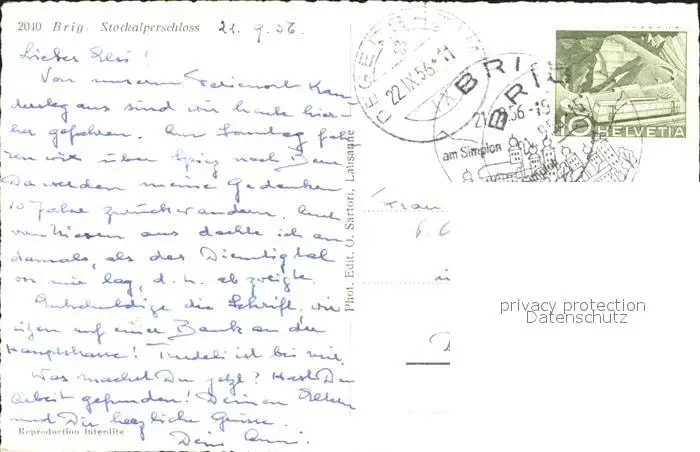 2040 Brig. Stockalperschloss 21. 9. 56.
Liebes Elsi!
Von unserm Ferienort Kan-
dersteg aus sind wir heute hier-
her gefahren. Am Sonntag fah-
ren wir über Spiez nach Bern
Da werden meine Gedanken
10 Jahre zurückwandern. Auch
von Niesen aus dachte ich an
damals, als das Diemtigtal
vor mir lag, d. h. abzweigte.
Entschuldige die Schrift, wir
sitzen auf einer Bank an der
Hauptstrasse! Trudeli ist bei mir.
Was machst Du jetzt? Hast Du
Arbeit gefunden! Deinen Eltern
und Dir herzliche Grüsse.
Dein Anni.
Reproduction interdite
Phot. Edit. O. Sartori, Lausanne
22.IX.56.-11
BRIG
BRIG
21.IX.56-15
am Simplon
10 HELVETIA
Frau
privacy protection
Datenschutz